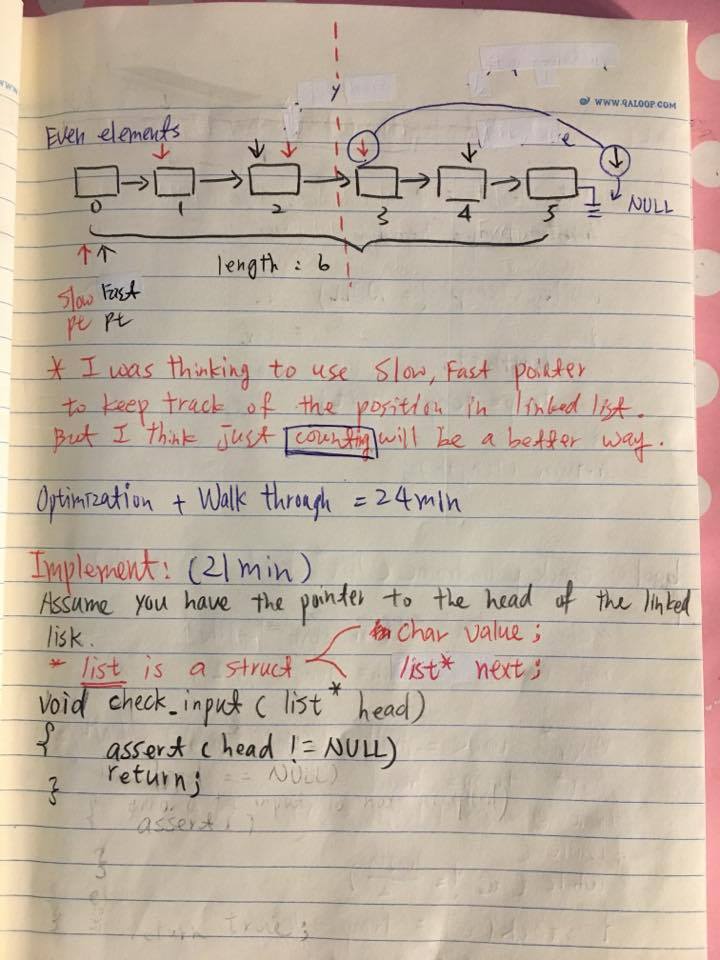 y
WWW.QALOOP.COM
Even elements
e
0 1 2 3 4 5 NULL
length : 6
Slow Fast
pt pt
* I was thinking to use Slow, Fast pointer
to keep track of the position in linked list.
But I think just counting will be a better way.
Optimization + Walk through = 24min
Implement: (21 min)
Assume you have the pointer to the head of the linked
lisk. Char value;
* list is a struct list* next;
void check_input ( list* head)
{ assert ( head != NULL)
return; == NULL)
}
assert
}